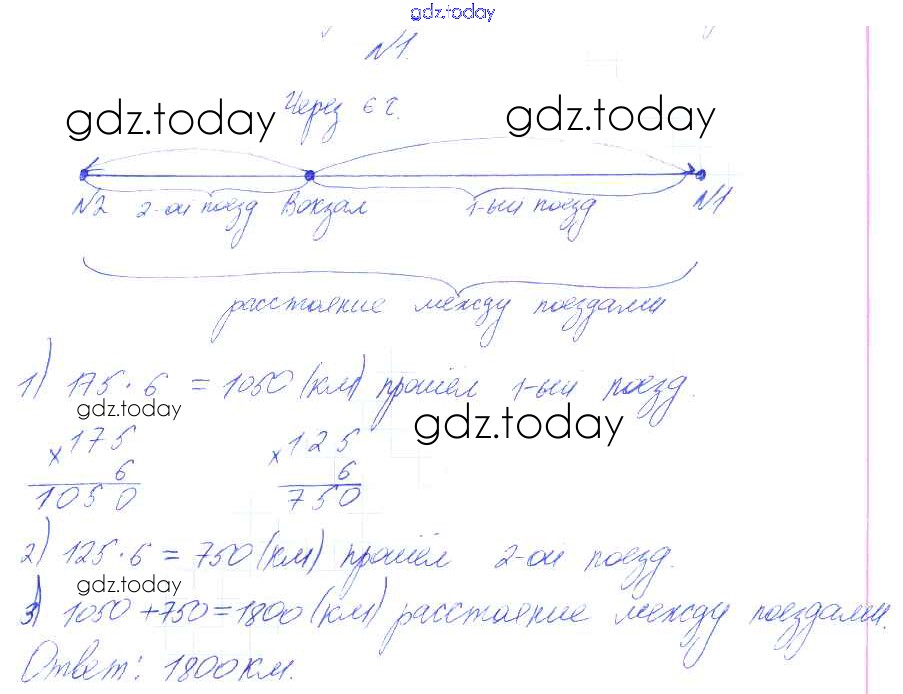 gdz.today
№1.
Через 6 ч.
gdz.today gdz.today
№2 2-ой поезд Вокзал 1-ый поезд №1
расстояние между поездами
1) 175 · 6 = 1050 (км) прошёл 1-ый поезд.
gdz.today gdz.today
× 175 × 125
6 6
1050 750
2) 125 · 6 = 750 (км) прошёл 2-ой поезд.
gdz.today
3) 1050 + 750 = 1800 (км) расстояние между поездами.
Ответ: 1800 км.